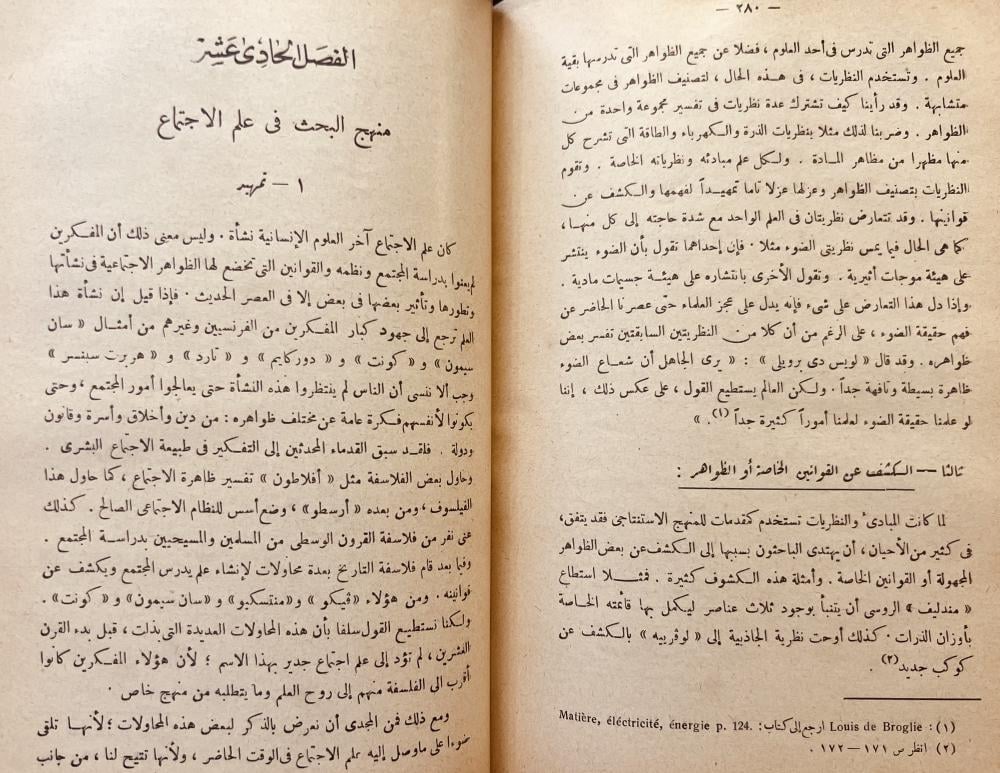 — ٢٨٠ —
جميع الظواهر التى تدرس فى أحد العلوم ، فضلا عن جميع الظواهر التى تدرسها بقية
العلوم . وتستخدم النظريات ، فى هذه الحال ، لتصنيف الظواهر فى مجموعات
متشابهة . وقد رأينا كيف تشترك عدة نظريات فى تفسير مجموعة واحدة من
الظواهر . وضربنا لذلك مثلا بنظريات الذرة والكهرباء والطاقة التى تشرح كل
منها مظهرا من مظاهر المادة . ولكل علم مبادئه ونظرياته الخاصة . وتقوم
النظريات بتصنيف الظواهر وعزلها عزلا تاما تمهيداً لفهمها والكشف عن
قوانينها . وقد تتعارض نظريتان فى العلم الواحد مع شدة حاجته إلى كل منهما ،
كما هى الحال فيما يمس نظريتى الضوء مثلا . فإن إحداهما تقول بأن الضوء ينتشر
على هيئة موجات أثيرية . وتقول الأخرى بانتشاره على هيئة جسيمات مادية .
وإذا دل هذا التعارض على شىء فإنه يدل على عجز العلماء حتى عصرنا الحاضر عن
فهم حقيقة الضوء ، على الرغم من أن كلا من النظريتين السابقتين تفسر بعض
ظواهره . وقد قال « لويس دى برويلى » : « يرى الجاهل أن شعاع الضوء
ظاهرة بسيطة وتافهة جداً . ولكن العالم يستطيع القول ، على عكس ذلك ، إننا
لو علمنا حقيقة الضوء لعلمنا أموراً كثيرة جداً (١) . »
ثالثا — الكشف عن القوانين الخاصة أو الظواهر :
لما كانت المبادئ والنظريات تستخدم كمقدمات للمنهج الاستنتاجى فقد يتفق ،
فى كثير من الأحيان ، أن يهتدى الباحثون بسببها إلى الكشف عن بعض الظواهر
المجهولة أو القوانين الخاصة . وأمثلة هذه الكشوف كثيرة . فمثلا استطاع
« مندليف » الروسى أن يتنبأ بوجود ثلاث عناصر ليكمل بها قائمته الخاصة
بأوزان الذرات . كذلك أوحت نظرية الجاذبية إلى « لوڤرييه » بالكشف عن
كوكب جديد (٢) .
(١) : Louis de Broglie ارجع إلى كتاب : Matière, éléctricité, énergie p. 124.
(٢) انظر ص ١٧١ — ١٧٢ .
الفصل الحادى عشر
منهج البحث فى علم الاجتماع
١ — تمهيد
كان علم الاجتماع آخر العلوم الإنسانية نشأة . وليس معنى ذلك أن المفكرين
لم يعنوا بدراسة المجتمع ونظمه والقوانين التى تخضع لها الظواهر الاجتماعية فى نشأتها
وتطورها وتأثير بعضها فى بعض إلا فى العصر الحديث . فإذا قيل إن نشأة هذا
العلم ترجع إلى جهود كبار المفكرين من الفرنسيين وغيرهم من أمثال « سان
سيمون » و « كونت » و « دوركايم » و « تارد » و « هربرت سبنسر »
وجب ألا ننسى أن الناس لم ينتظروا هذه النشأة حتى يعالجوا أمور المجتمع ، وحتى
يكونوا لأنفسهم فكرة عامة عن مختلف ظواهره : من دين وأخلاق وأسرة وقانون
ودولة . فلقد سبق القدماء المحدثين إلى التفكير فى طبيعة الاجتماع البشرى .
وحاول بعض الفلاسفة مثل « أفلاطون » تفسير ظاهرة الاجتماع ، كما حاول هذا
الفيلسوف ، ومن بعده « أرسطو » ، وضع أسس للنظام الاجتماعى الصالح . كذلك
عنى نفر من فلاسفة القرون الوسطى من المسلمين والمسيحيين بدراسة المجتمع .
وفيما بعد قام فلاسفة التاريخ بعدة محاولات لإنشاء علم يدرس المجتمع ويكشف عن
قوانينه . ومن هؤلاء « ڤيكو » و « منتسكيو » و « سان سيمون » و « كونت » .
ولكنا نستطيع القول سلفا بأن هذه المحاولات العديدة التى بذلت ، قبل بدء القرن
العشرين ، لم تؤد إلى علم اجتماع جدير بهذا الاسم ؛ لأن هؤلاء المفكرين كانوا
أقرب الى الفلسفة منهم إلى روح العلم وما يتطلبه من منهج خاص .
ومع ذلك فمن المجدى أن نعرض بالذكر لبعض هذه المحاولات ؛ لأنها تلقى
ضوءا على ماوصل إليه علم الاجتماع فى الوقت الحاضر ، ولأنها تتيح لنا ، من جانب